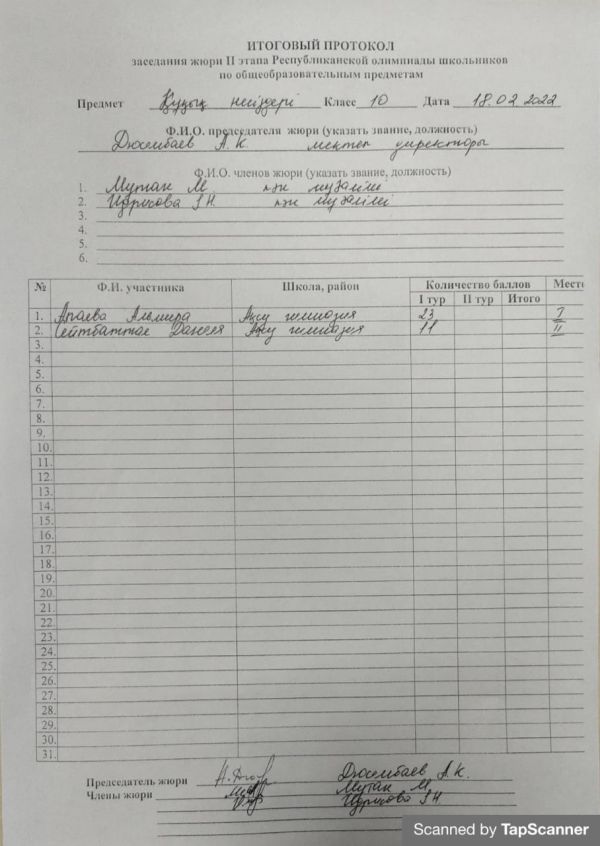 ИТОГОВЫЙ ПРОТОКОЛ
заседания жюри II этапа Республиканской олимпиады школьников
по общеобразовательным предметам
Предмет Құқық негіздері Класс 10 Дата 18.02.2022
Ф.И.О. председателя жюри (указать звание, должность)
Дюсембаев А.К. мектеп директоры
Ф.И.О. членов жюри (указать звание, должность)
1. Мутан М. пән мұғалімі
2. Идрисова З.Н. пән мұғалімі
3.
4.
5.
6.
№ Ф.И. участника Школа, район Количество баллов Место
I тур II тур Итого
1. Апаева Альмира Ақсу гимназия 23 I
2. Ақсу гимназия 11 II
3.
4.
5.
6.
7.
8.
9.
10.
11.
12.
13.
14.
15.
16.
17.
18.
19.
20.
21.
22.
23.
24.
25.
26.
27.
28.
29.
30.
31.
Председатель жюри Дюсембаев А.К.
Члены жюри Мутан М.
Идрисова З.Н.
Scanned by TapScanner